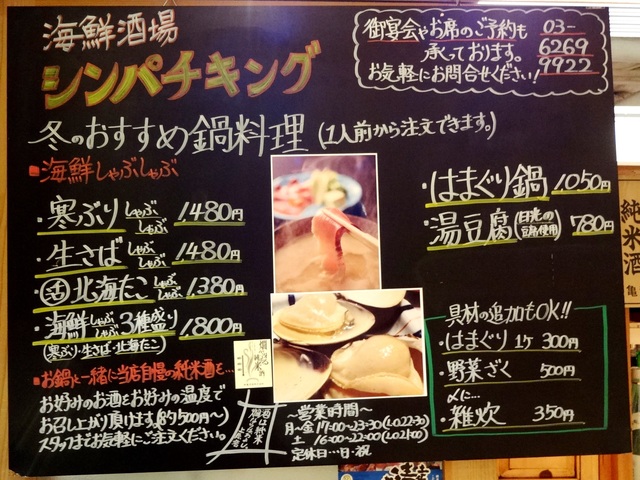 海鮮酒場
シンパチキング
御宴会やお席のご予約も
承っております。
お気軽にお問合せください!
03-
6269
9922
冬のおすすめ鍋料理(1人前から注文できます。)
■海鮮しゃぶしゃぶ
・寒ぶりしゃぶしゃぶ 1480円
・生さばしゃぶしゃぶ 1480円
・活北海たこしゃぶしゃぶ 1,380円
・海鮮しゃぶしゃぶ3種盛り 1,800円
(寒ぶり・生さば・北海たこ)
・はまぐり鍋 1,050円
・湯豆腐(日光の豆腐使用) 780円
具材の追加もOK!!
・はまぐり 1ケ 300円
・野菜ざく 500円
〆に…
・雑炊 350円
■お鍋と一緒に当店自慢の純米酒を…
お好みのお酒をお好みの温度で
お召し上がり頂けます(約500円〜)
スタッフまでお気軽にご注文ください。
酒は純米
燗ならなおよし
上原浩
〜営業時間〜
月〜金 17:00〜23:30(L.O22:30)
土 16:00〜22:00(L.O21:00)
定休日…日・祝
純米酒
亀